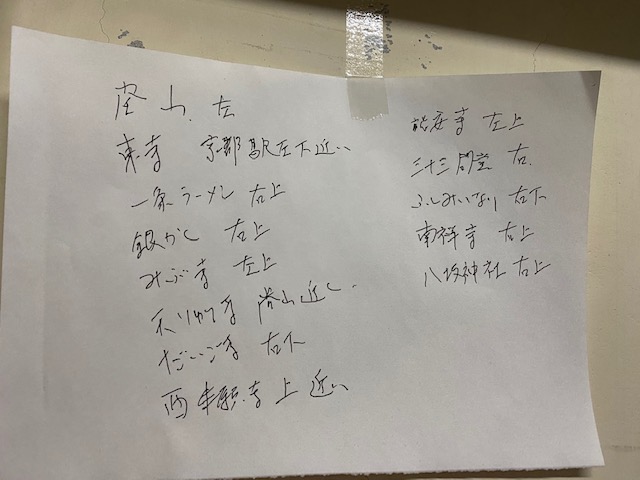 嵐山 左
東寺 京都駅左下近い
一条ラーメン 右上
銀かく 右上
みぶ寺 左上
嵐山近く
だいご寺 右下
西本願寺 上 近い
寺 左上
三十三間堂 右
ふしみいなり 右下
南禅寺 右上
八坂神社 右上